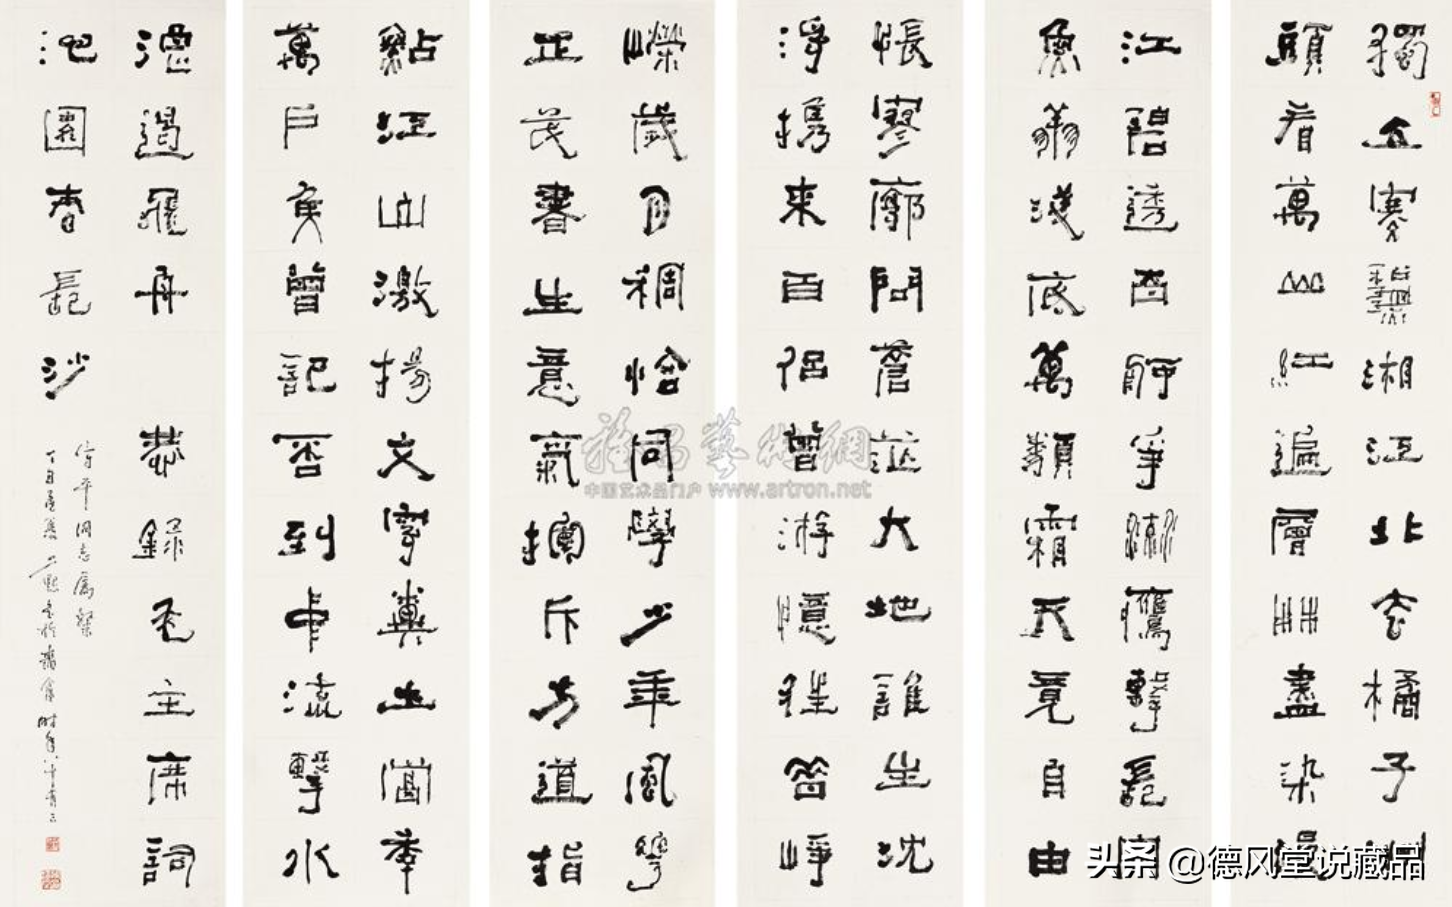 獨立寒秋湘江北去橘子洲
頭看萬山紅遍層林盡染漫
江碧透百舸爭流鷹擊長空
魚翔淺底萬類霜天競自由
悵寥廓問蒼茫大地誰主沈
浮攜來百侶曾游憶往昔崢
嶸歲月稠恰同學少年風華
正茂書生意氣揮斥方遒指
點江山激揚文字糞土當年
萬戶侯曾記否到中流擊水
浪遏飛舟 恭錄毛主席詞
沁園春長沙
平同志屬
時年八十有三
雅昌藝術網
中国艺术品门户 www.artron.net
头条 @德风堂说藏品